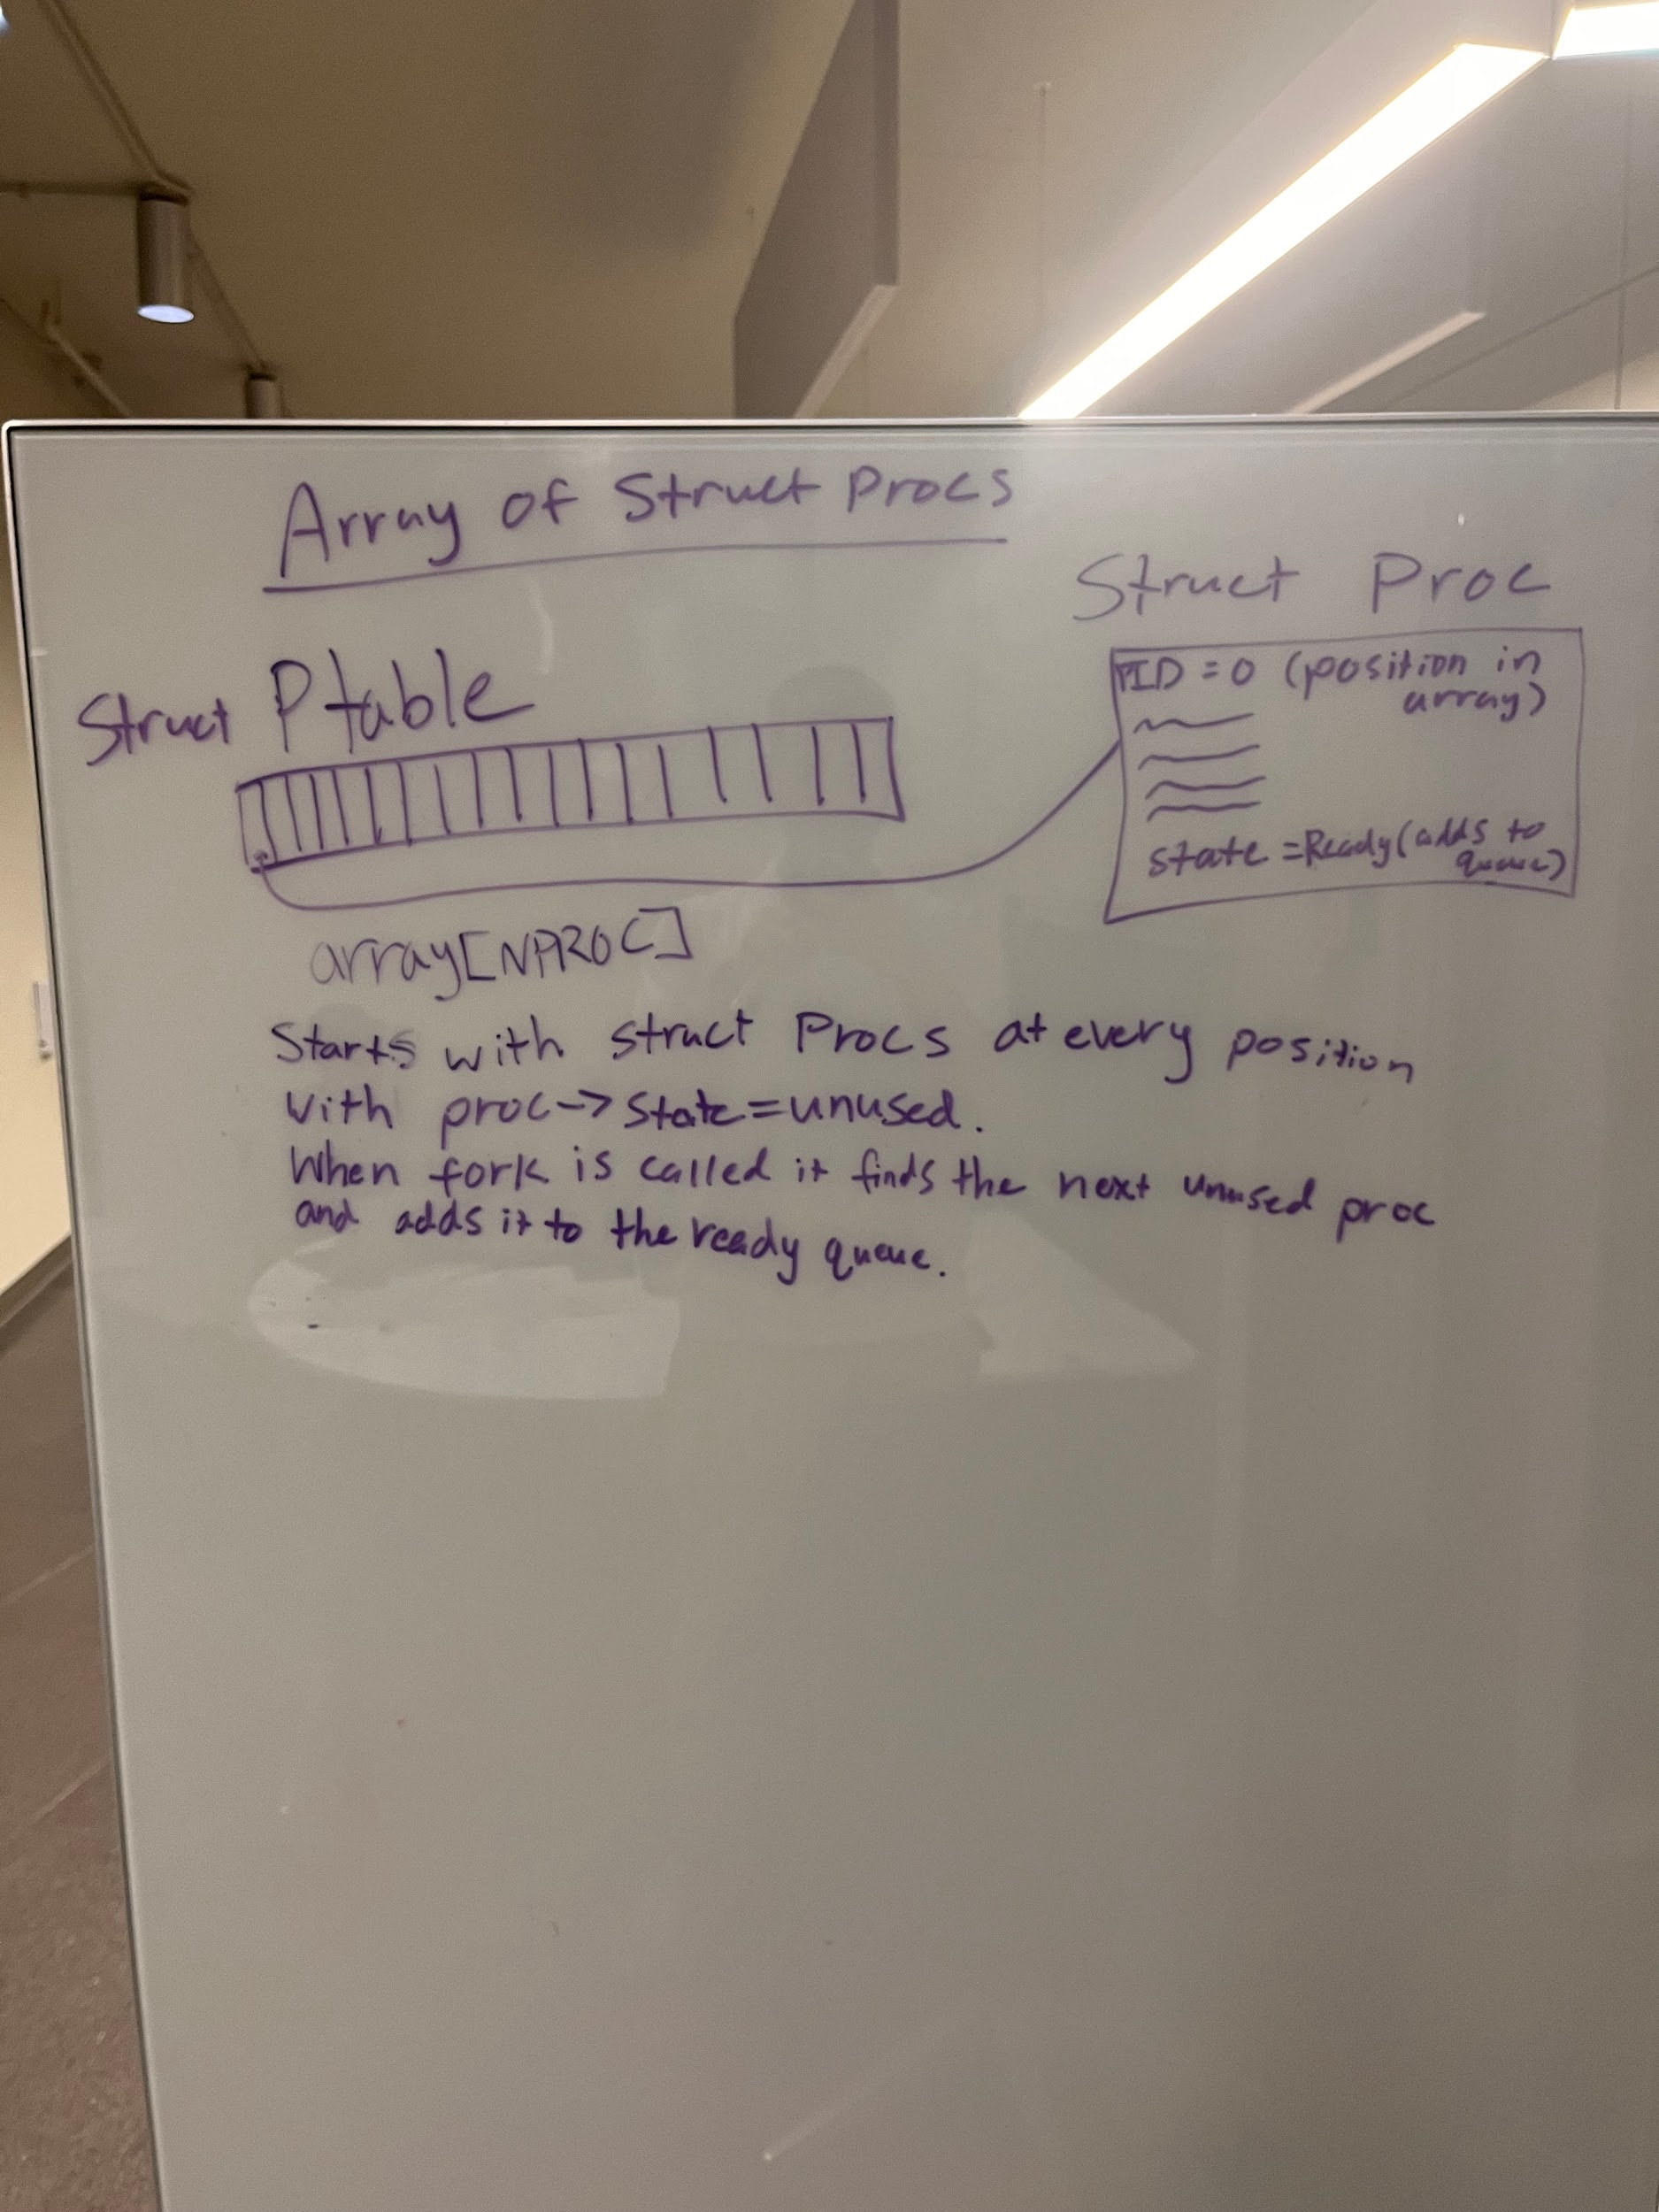 Array of Struct Procs
Struct Ptable
array[NPROC]
Struct Proc
PID = 0 (position in
array)
state = Ready (adds to
queue)
Starts with struct Procs at every position
with proc-> state = unused.
When fork is called it finds the next unused proc
and adds it to the ready queue.